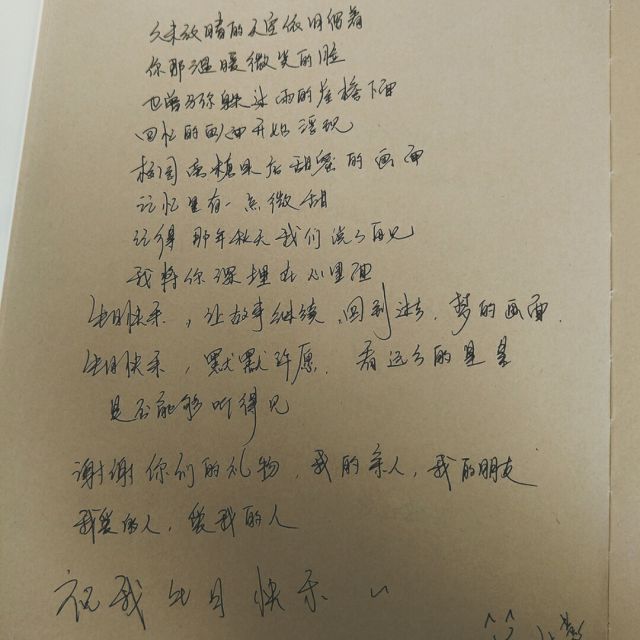 久未放晴的天空依旧留着
你那温暖微笑的脸
也曾为你躲开雨的屋檐下面
回忆的画面开始浮现
校园 糖果店 甜蜜的画面
记忆里有一点微甜
记得那年秋天我们说了再见
我将你深埋在心里面
生日快乐，让故事继续，回到过去，梦的画面.
生日快乐，默默许愿. 看远方的星星
是否能够听得见
谢谢你们的礼物，我的亲人，我的朋友
我爱的人，爱我的人
祝我生日快乐